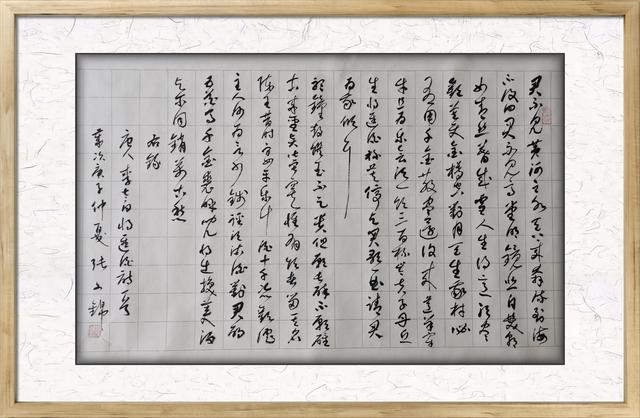 君不见黄河之水天上来奔流到海
不復回君不见高堂明鏡悲白髮朝
如青丝暮成雪人生得意须尽
歡莫使金樽空對月天生我材必
有用千金散尽還復来烹羊宰
牛且为乐会须一饮三百杯岑夫子丹丘
生将進酒杯莫停与君歌一曲请君
为我倾耳听
鐘鼓馔玉不足贵但愿长醉不愿醒
古来圣贤皆寂寞惟有饮者留其名
陈王昔时宴平乐斗酒十千恣歡谑
主人何为言少钱径须沽酒對君酌
五花马千金裘呼儿将出换美酒
与尔同銷万古愁
右録
唐人李太白将進酒诗
岁次庚子仲夏张文锦